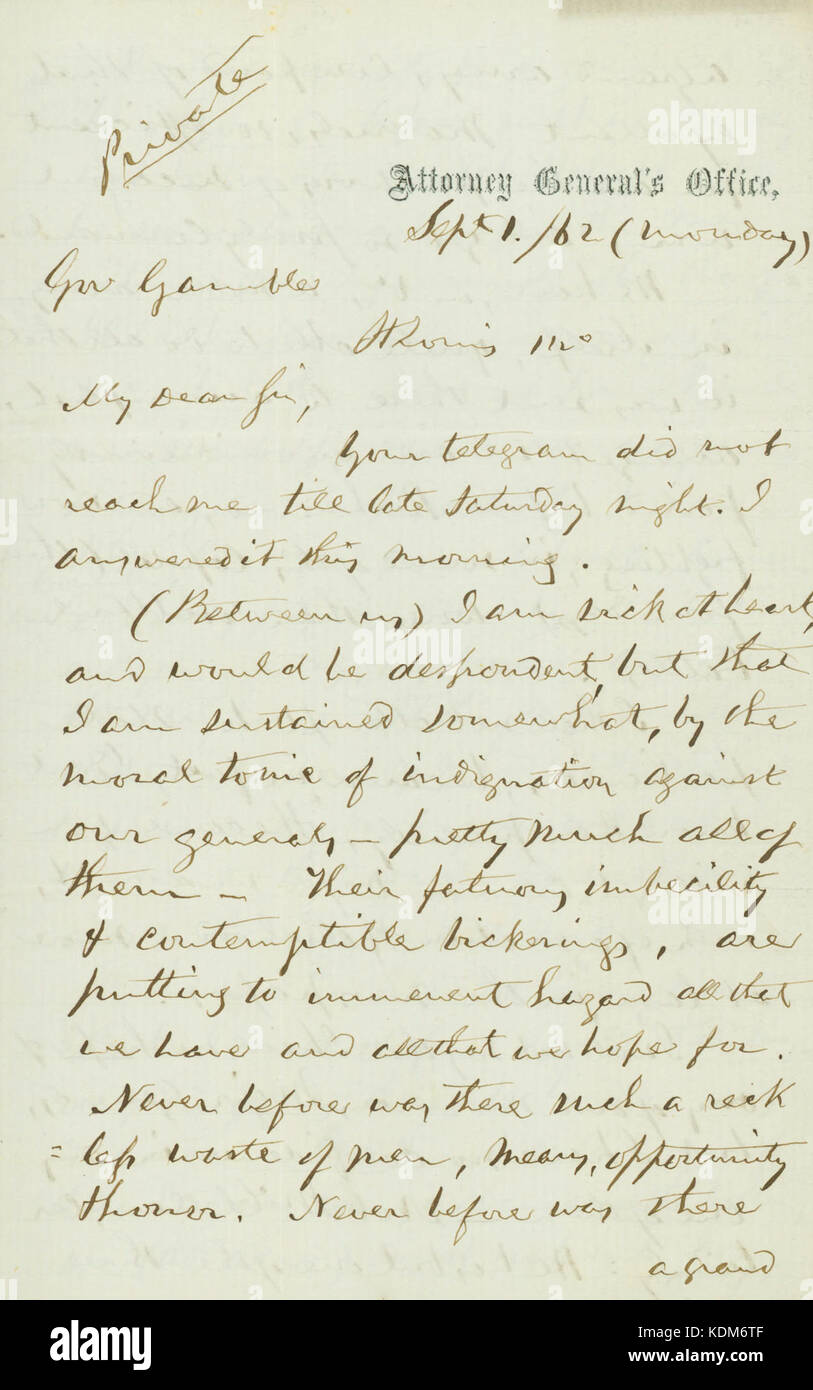 Private
Attorney General's Office,
Sept 1. /62 (Monday)
Gov Gamble
St Louis Mo
My Dear Sir,
Your telegram did not
reach me till late Saturday night. I
answered it this morning.
(Between us) I am sick at heart,
and would be despondent, but that
I am sustained somewhat, by the
moral tonic of indignation against
our generals — pretty much all of
them — Their fatuous imbecility
& contemptible bickerings, are
putting to immenent hazard all that
we have and all that we hope for.
Never before was there such a reck
=less waste of men, means, opportunity
& honor. Never before was there
a grand
alamy stock photo
KDM6TF
www.alamy.com